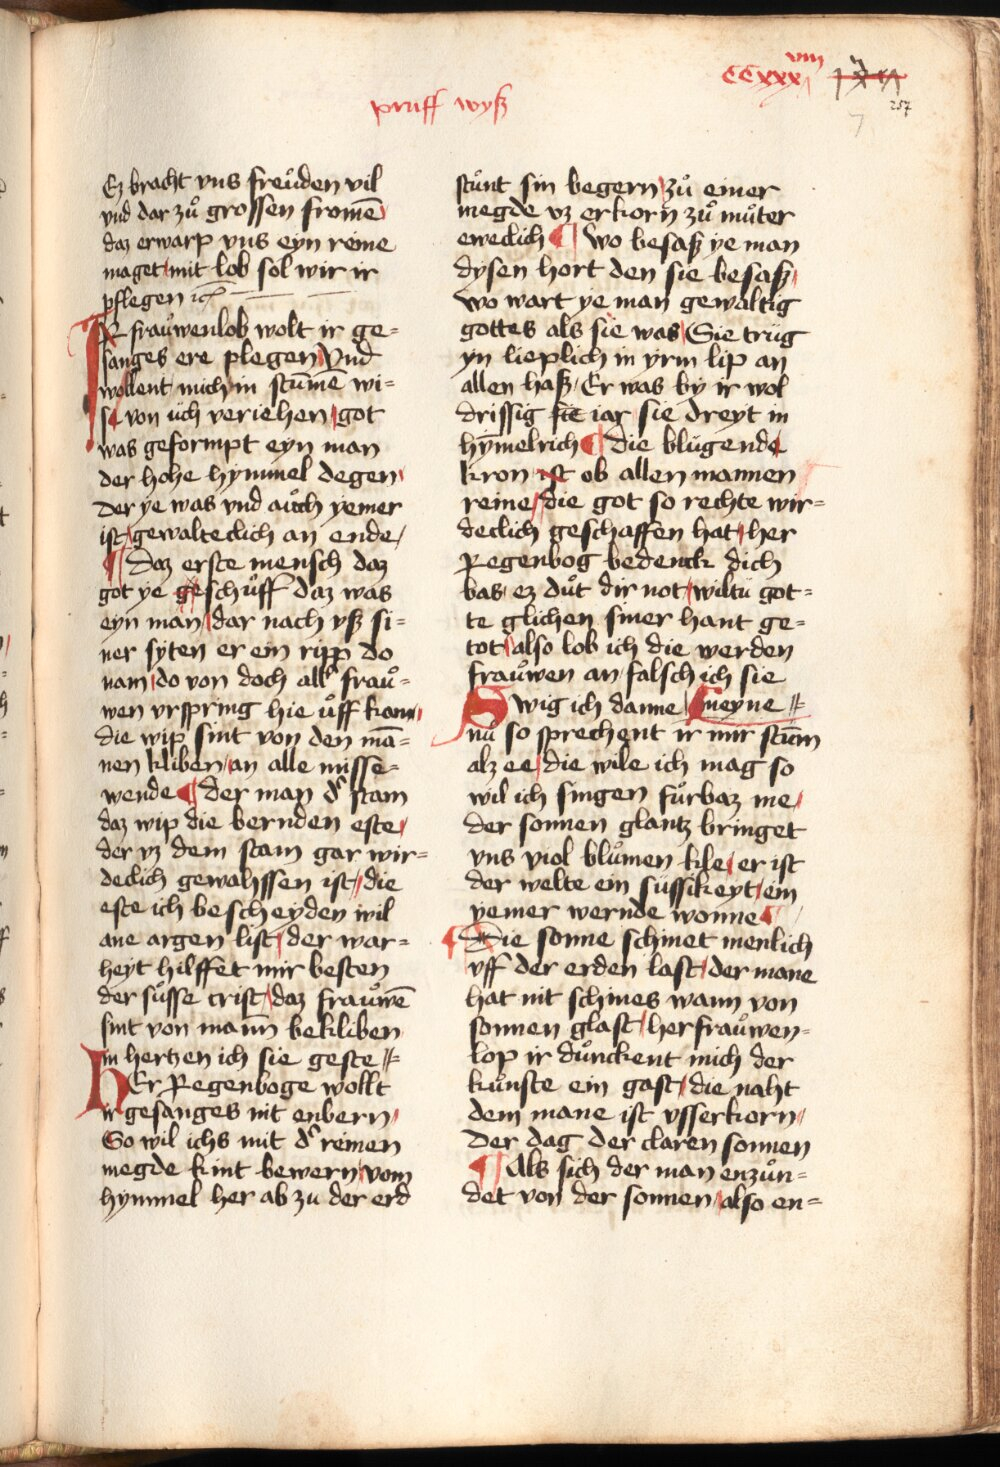 CCxxx viiij
257
7
priff wyß
Ez bracht vns freuͦden vil
vnd dar zuͦ grossen fromē
daz erwarp vns eyn reine
maget / mit lob sol wir ir
pflegen ⁊c̄
IR frauͦwenlob wolt ir ge=
sanges ere plegen / Vnd
wollent mich in stūmē wi=
se von uͤch veriehen / got
was geformpt eyn man
der hohe hymmel degen /
Der ye was vnd auͦch yemer
ist / gewalteclich an ende /
¶ Daz erste mensch daz
got ye geschuͦff daz was
eyn man / dar nach vß si=
ner syten er ein ripp do
nam / do von doch all' frauͦ=
wen vrspring hie uͦff kam /
die wip sint von den mā=
nen kliben / an alle misse=
wende ¶ der man d' stam
daz wip die bernden este /
der vz dem stam gar wir=
declich gewahssen ist / die
este ich bescheyden wil
ane argen list / der war=
heyt hilffet mir besten
der suͦsse crist / daz frauͦwē
sint von mann̄ bekliben
im hertzen ich sie geste =
HEr Regenboge wollt
ir gesanges nit enbern /
So wil ichs mit d' reinen
megde kint bewern / vom
hymmel her ab zu der erd
stuͦnt sin begern / zuͦ einer
megde vz erkorn̄ zuͦ muͦter
eweclich ¶ Wo besaß ye man
dysen hort den sie besaß /
Wo wart ye man gewaltig
gottes als sie was / Sie truͤg
yn lieplich in yrm lip an
allen haß / Er was by ir wol
drissig iar sie dreyt in
hȳmelrich ¶ Die bluͤgende
kron ist ob allen mannen
reine / die got so rechte wir=
declich geschaffen hat / her
Regenbog bedenck dich
bas / ez duͦt dir not / wiltu got=
te glichen siner hant ge=
tot / also lob ich die werden
frauͦwen an falsch ich sie
Swig ich danne / meyne =
nuͦ so sprechent ir mir stūm
alz ee / die wile ich mag so
wil ich singen fuͦrbaz me /
der sonnen glantz bringet
vns viol bluͦmen kle / er ist
der welte ein suͤssikeyt / ein
yemer wernde wonne ¶
Die sonne schinet menlich
vff der erden last / der mane
hat nit schines wann von
sonnen glast / her frauͦwen=
lop ir duͦnckent mich der
kuͦnste ein gast / die naht
dem mane ist vsserkorn /
Der dag der claren sonnen
¶ Als sich der man enzuͦn=
det von der sonnen / also en=